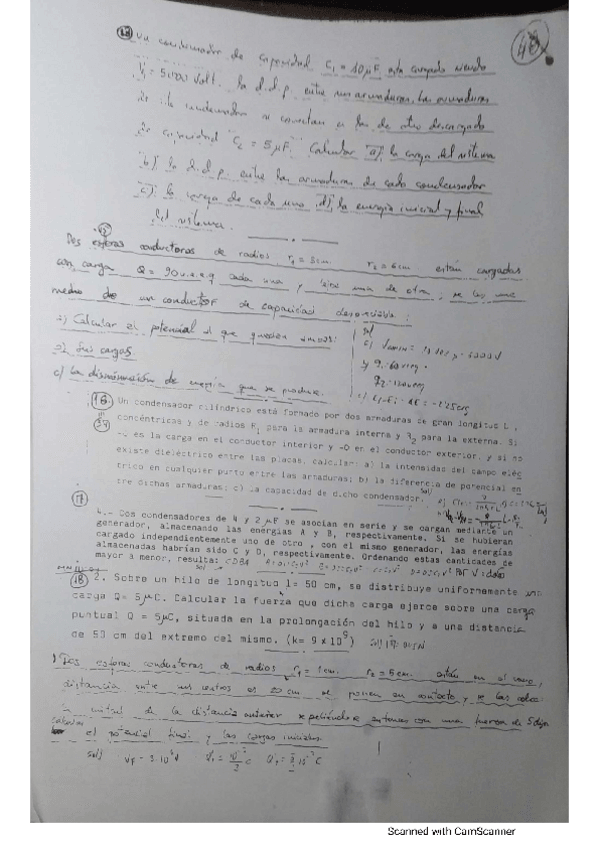 48
13 Un condensador de capacidad C₁ = 10 μF está cargado siendo
V₁ = 5.000 Volt. la d.d.p. entre sus armaduras. Las armaduras
de este condensador se conectan a las de otro descargado
de capacidad C₂ = 5 μF. Calcular a) la carga del sistema
b) la d.d.p. entre las armaduras de cada condensador
c) la carga de cada uno d) la energía inicial y final
del sistema.
15
Dos esferas conductoras de radios r₁ = 3cm. r₂ = 6cm están cargadas
con carga Q = 90 u.e.q cada una y una de otra, se las une
medio de un conductor de capacidad despreciable:
a) Calcular el potencial al que quedan ambas:
b) Sus cargas
c) La disminución de energía que se produce.
Sol
16. Un condensador cilíndrico está formado por dos armaduras de gran longitud L,
concéntricas y de radios R₁ para la armadura interna y R₂ para la externa. Si
es la carga en el conductor interior y -Q en el conductor exterior, y si no
existe dieléctrico entre las placas, calcular: a) la intensidad del campo eléc
trico en cualquier punto entre las armaduras; b) la diferencia de potencial en
tre dichas armaduras; c) La capacidad de dicho condensador.
17
4.- Dos condensadores de 4 y 2 μF se asocian en serie y se cargan mediante un
generador, almacenando las energías A y B, respectivamente. Si se hubieran
cargado independientemente uno de otro, con el mismo generador, las energías
almacenadas habrían sido C y D, respectivamente. Ordenando estas cantidades de
mayor a menor, resulta: CDBA
18 2. Sobre un hilo de longitud l= 50 cm, se distribuye uniformemente una
carga Q= 5μC. Calcular la fuerza que dicha carga ejerce sobre una carga
puntual Q = 5μC, situada en la prolongación del hilo y a una distancia
de 50 cm del extremo del mismo. (k= 9 x 10⁹)
Dos esferas conductoras de radios r₁ = 1cm. r₂ = 5cm. están en el vacío,
distancia entre sus centros es 20 cm se ponen en contacto y se las coloca
la mitad de la distancia anterior repeliéndose entonces con una fuerza de
el potencial final y las cargas iniciales.
Scanned with CamScanner